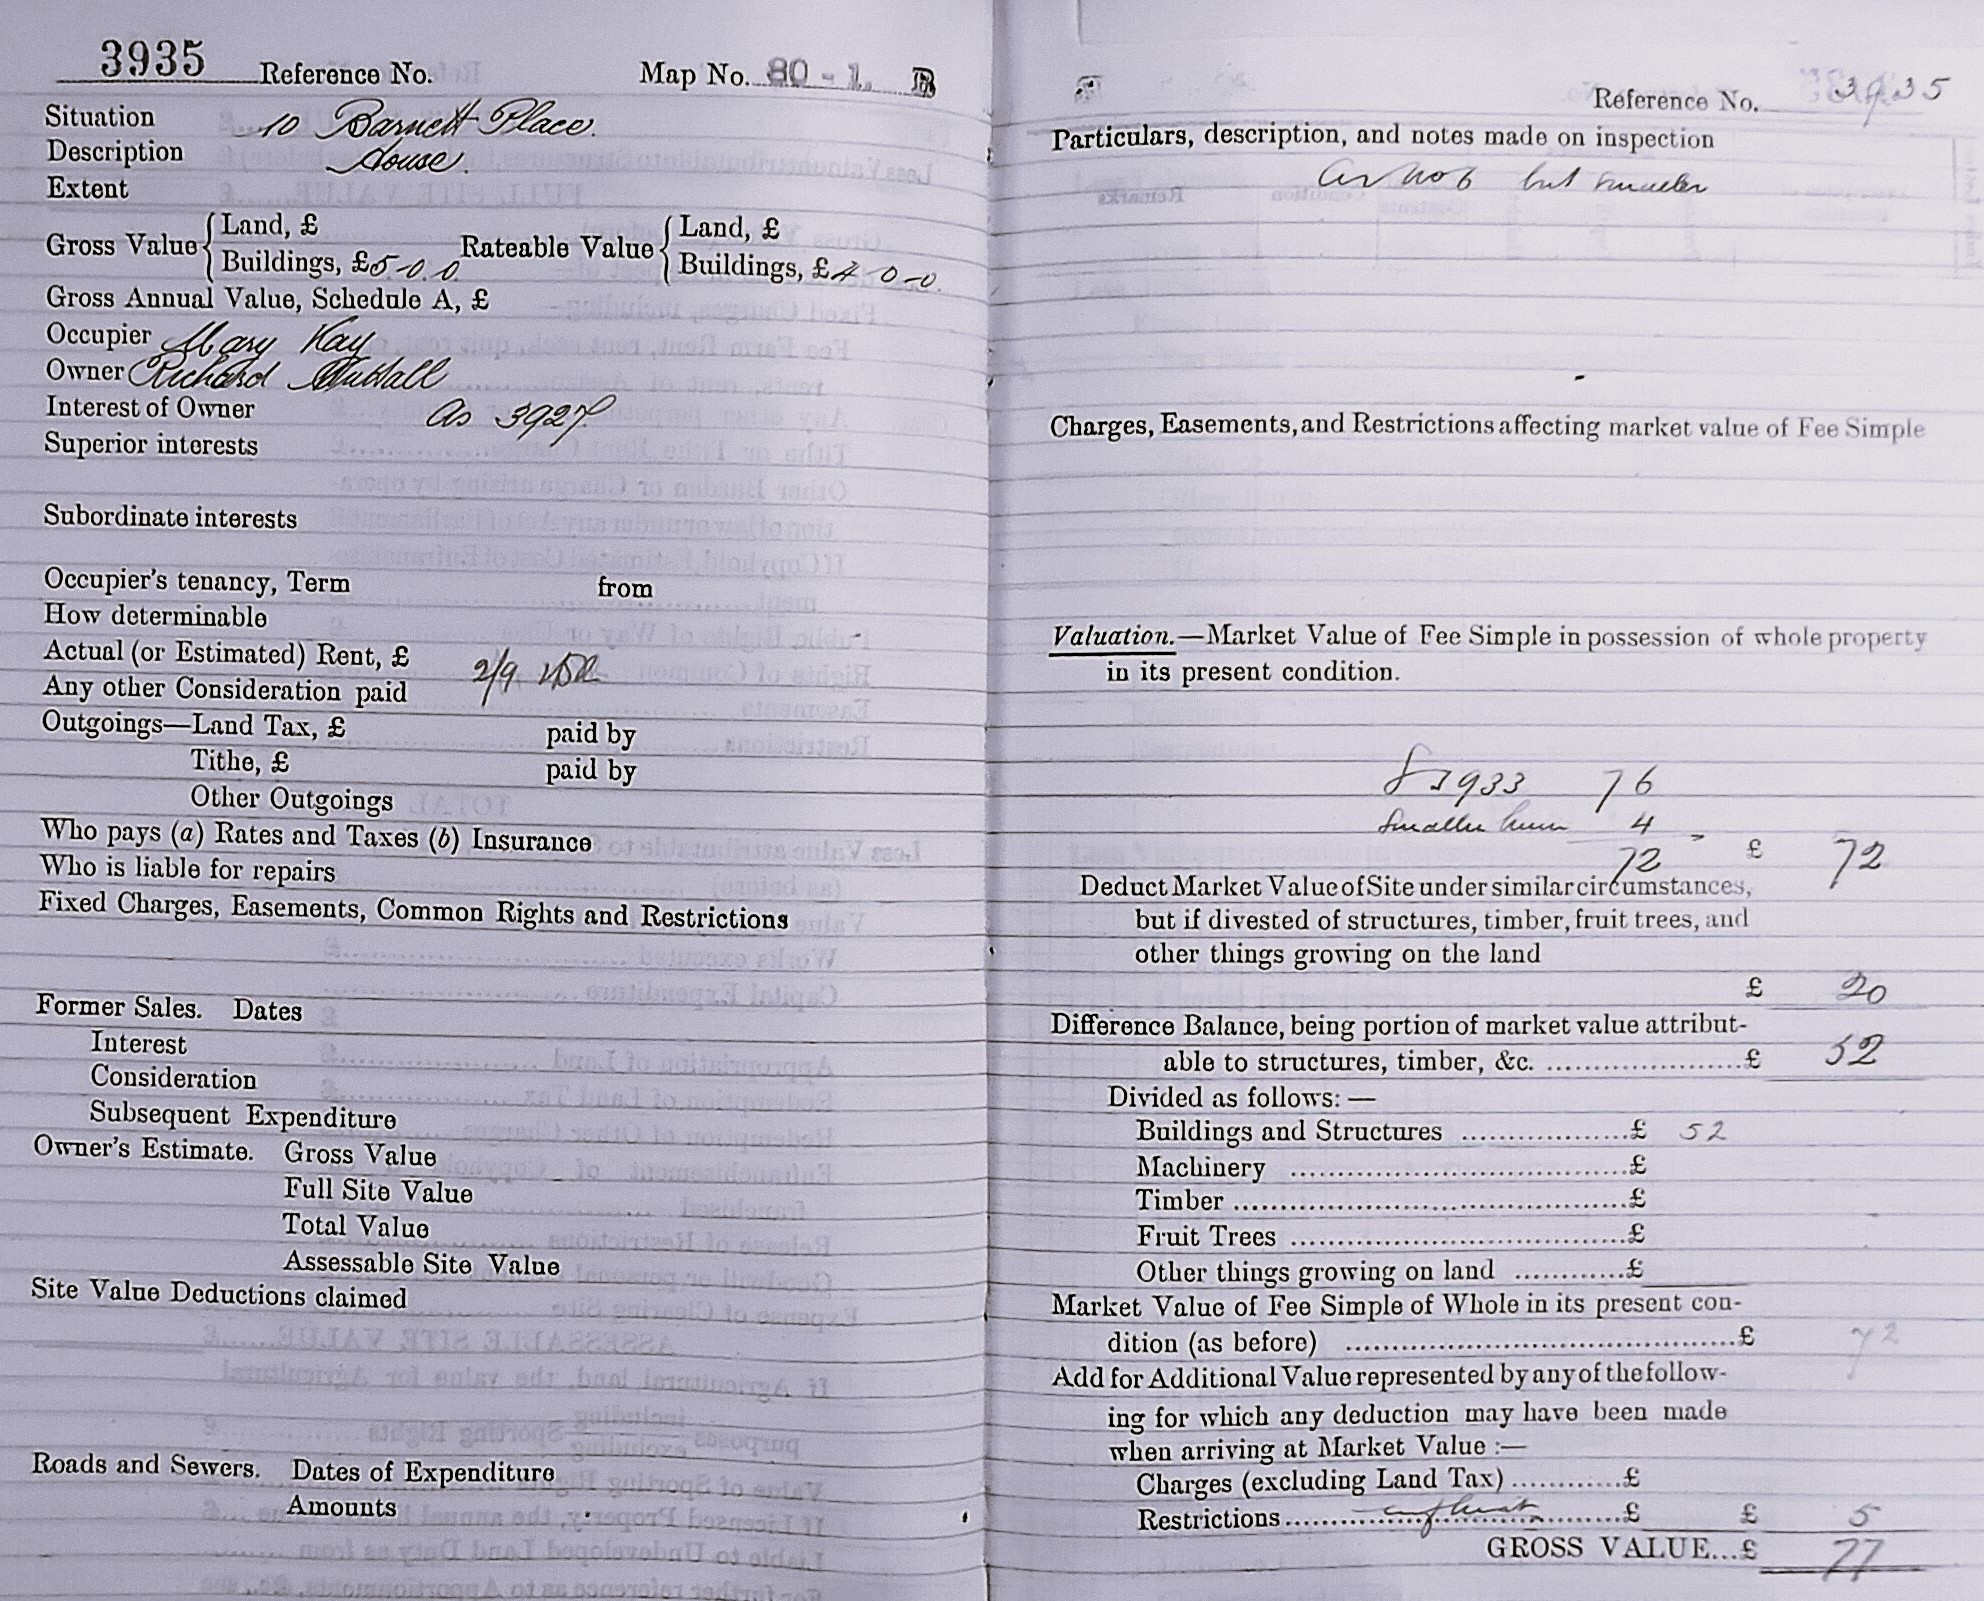 3935 Reference No. Map No. 80-1. B
Situation 10 Barnett Place.
Description House.
Extent
Gross Value { Land, £ Rateable Value { Land, £
Buildings, £5-0.0 Buildings, £4-0-0.
Gross Annual Value, Schedule A, £
Occupier Mary Kay
Owner Richard
Interest of Owner As 3927
Superior interests
Subordinate interests
Occupier's tenancy, Term from
How determinable
Actual (or Estimated) Rent, £ 2/9
Any other Consideration paid
Outgoings—Land Tax, £ paid by
Tithe, £ paid by
Other Outgoings
Who pays (a) Rates and Taxes (b) Insurance
Who is liable for repairs
Fixed Charges, Easements, Common Rights and Restrictions
Former Sales. Dates
Interest
Consideration
Subsequent Expenditure
Owner's Estimate. Gross Value
Full Site Value
Total Value
Assessable Site Value
Site Value Deductions claimed
Roads and Sewers. Dates of Expenditure
Amounts
Reference No. 3935
Particulars, description, and notes made on inspection
As No 6 but smaller
Charges, Easements, and Restrictions affecting market value of Fee Simple
Valuation.—Market Value of Fee Simple in possession of whole property
in its present condition.
3933 76
Smaller 4
72 £ 72
Deduct Market Value of Site under similar circumstances,
but if divested of structures, timber, fruit trees, and
other things growing on the land
£ 20
Difference Balance, being portion of market value attribut-
able to structures, timber, &c. .................... £ 52
Divided as follows: —
Buildings and Structures .................£ 52
Machinery ..................................£
Timber .......................................£
Fruit Trees ..................................£
Other things growing on land ............£
Market Value of Fee Simple of Whole in its present con-
dition (as before) .......................................£ 72
Add for Additional Value represented by any of the follow-
ing for which any deduction may have been made
when arriving at Market Value :—
Charges (excluding Land Tax) ............£
Restrictions...................................£ £ 5
GROSS VALUE...£ 77